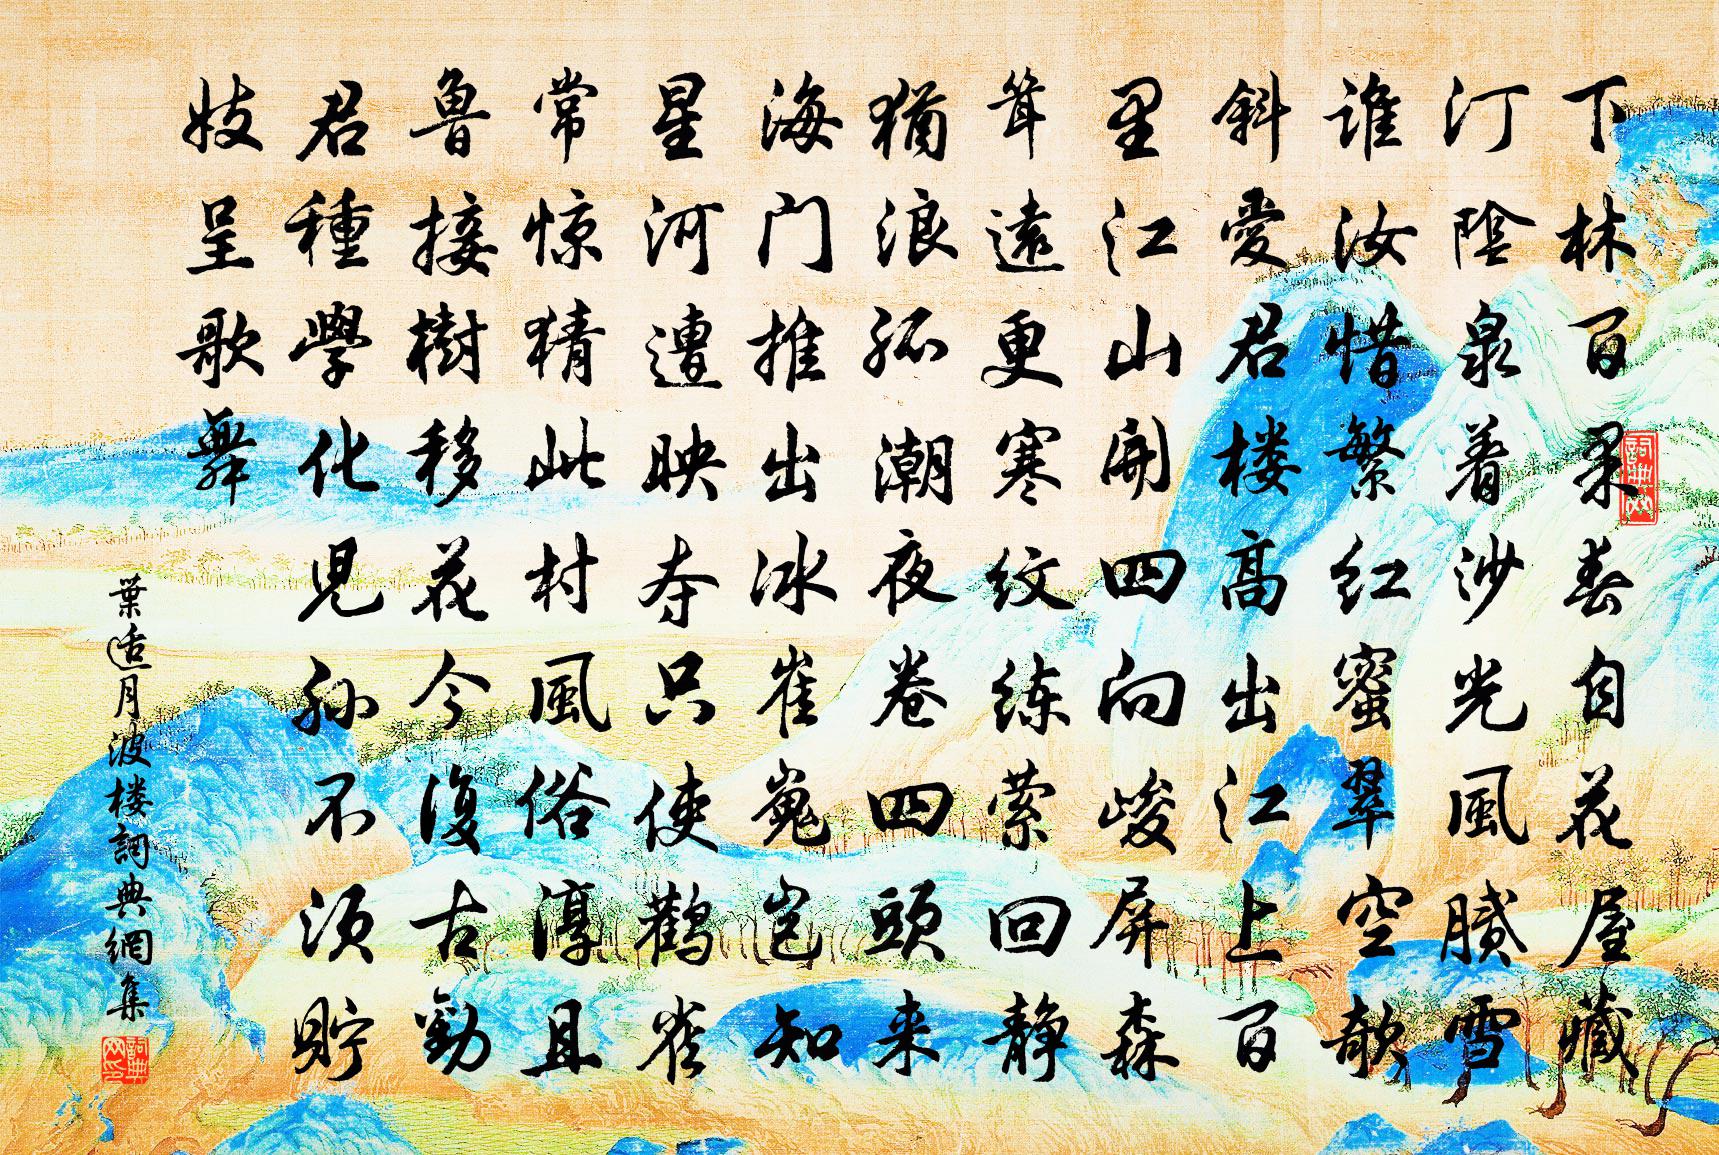 下林百果春自花屋藏
汀陰泉着沙光風膩雪
谁汝惜繁红蜜翠空欹
斜愛君楼高出江上百
里江山開四向峻屏森
耸遠更寒纹练萦回静
猶浪孤潮夜卷四頭来
海门推出冰崔嵬岂知
星河遭映夺只使鹳雀
常惊猜此村風俗淳且
魯接樹移花今復古勸
君種學化兒孙不须貯
妓呈歌舞
葉适月波楼詞典網集
詞典网
詞典网印